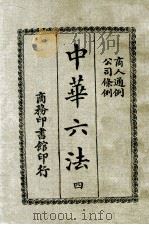 商人通例
公司條例
中華六法 四
商務印書館印行
www.toutu006.com